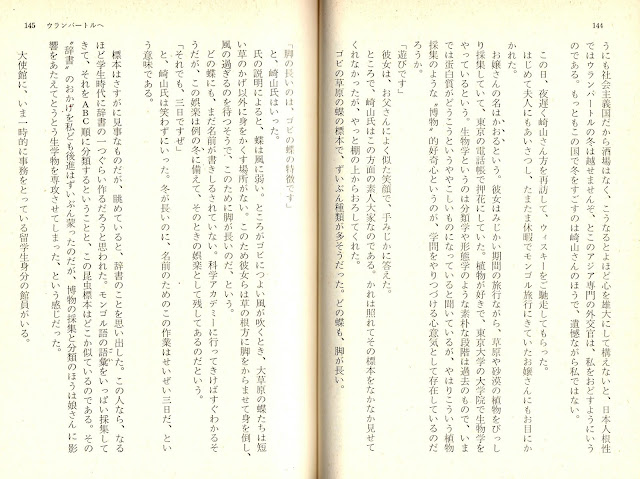 144
うにも社会主義国だから酒場はなく、こうなるとよほど心を雄大にして構えないと、日本人根性
ではウランバートルの冬は越せませんぞ、とこのアジア専門の外交官は、私をおどすようにいう
のである。もっともこの国で冬をすごすのは崎山さんのほうで、遺憾ながら私ではない。
この日、夜遅く崎山さん方を再訪して、ウィスキーをご馳走してもらった。
はじめて夫人にもあいさつし、たまたま休暇でモンゴル旅行にきていたお嬢さんにもお目にか
かれた。
お嬢さんの名はかおるという。彼女はみじかい期間の旅行ながら、草原や砂漠の植物をびっし
り採集していて、東京の電話帳で押花にしていた。植物が好きで、東京大学の大学院で生物学を
やっているという。生物学というのは分類学や形態学のような素朴な段階は過去のもので、いま
では蛋白質がどうこうというややこしいものになっていると聞いているが、やはりこういう植物
採集のような〝博物〟的好奇心というのが、学問をやりつづける心意気として存在しているのだ
ろうか。
「遊びです」
彼女は、お父さんによく似た笑顔で、手みじかに答えた。
ところで、崎山氏はこの方面の素人大家なのである。かれは照れてその標本をなかなか見せて
くれなかったが、やっと棚の上からおろしてくれた。
ゴビの草原の蝶の標本で、ずいぶん種類が多そうだった。どの蝶も、脚が長い。
145 ウランバートルへ
「脚の長いのは、ゴビの蝶の特徴です」
と、崎山氏はいった。
氏の説明によると、蝶は風に弱い。ところがゴビにつよい風が吹くとき、大草原の蝶たちは短
い草のかげ以外に身をかくす場所がない。このため彼女らは草の根方に脚をからませて身を倒し、
風の過ぎるのを待つのそうで、このために脚が長いのだ、という。
どの蝶にも、まだ名前が書きしるされていない。科学アカデミーに行ってきけばすぐわかるそ
うだが、この娯楽は例の冬に備えて、そのときの娯楽として残してあるのだという。
「それでも、三日ですぜ」
と、崎山氏は笑わずにいった。冬が長いのに、名前のためのこの作業はせいぜい三日だ、とい
う意味である。
標本はさすがに見事なものだが、眺めていると、辞書のことを思い出した。この人なら、なる
ほど学生時代に辞書の一つぐらい作るだろうと思われた。モンゴル語の語彙をいっぱい採集して
きて、それをABC順に分類するということと、この昆虫標本はどこか似ているのである。その
〝辞書〟のおかげを私ども後進はずいぶん蒙ったのだが、博物の採集と分類のほうは娘さんに影
響をあたえてとうとう生学物を専攻させてしまった、という感じだった。
大使館に、いま一時的に事務をとっている留学生身分の館員がいる。